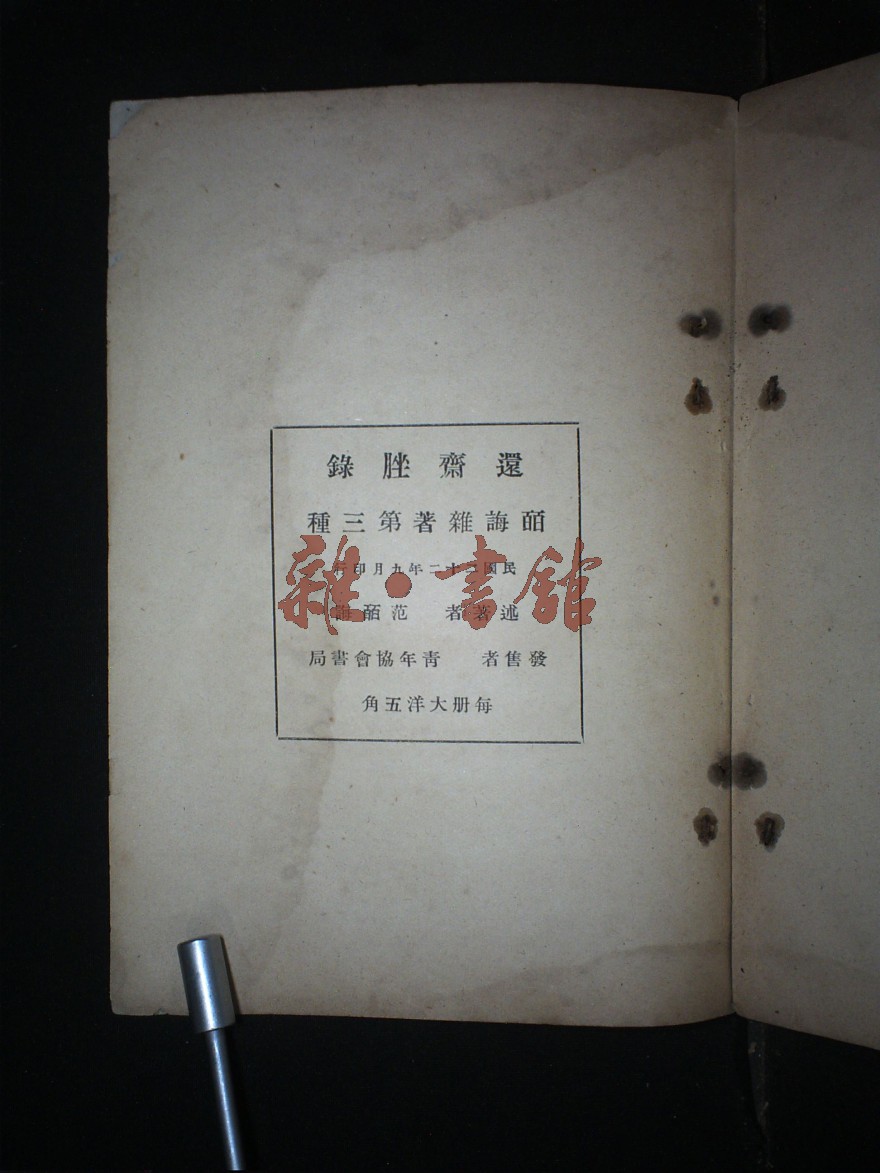 還齋脞錄
皕誨雜著第三種
民國二十二年九月印行
述著者 范皕誨
發售者 青年協會書局
每册大洋五角
雜·書館